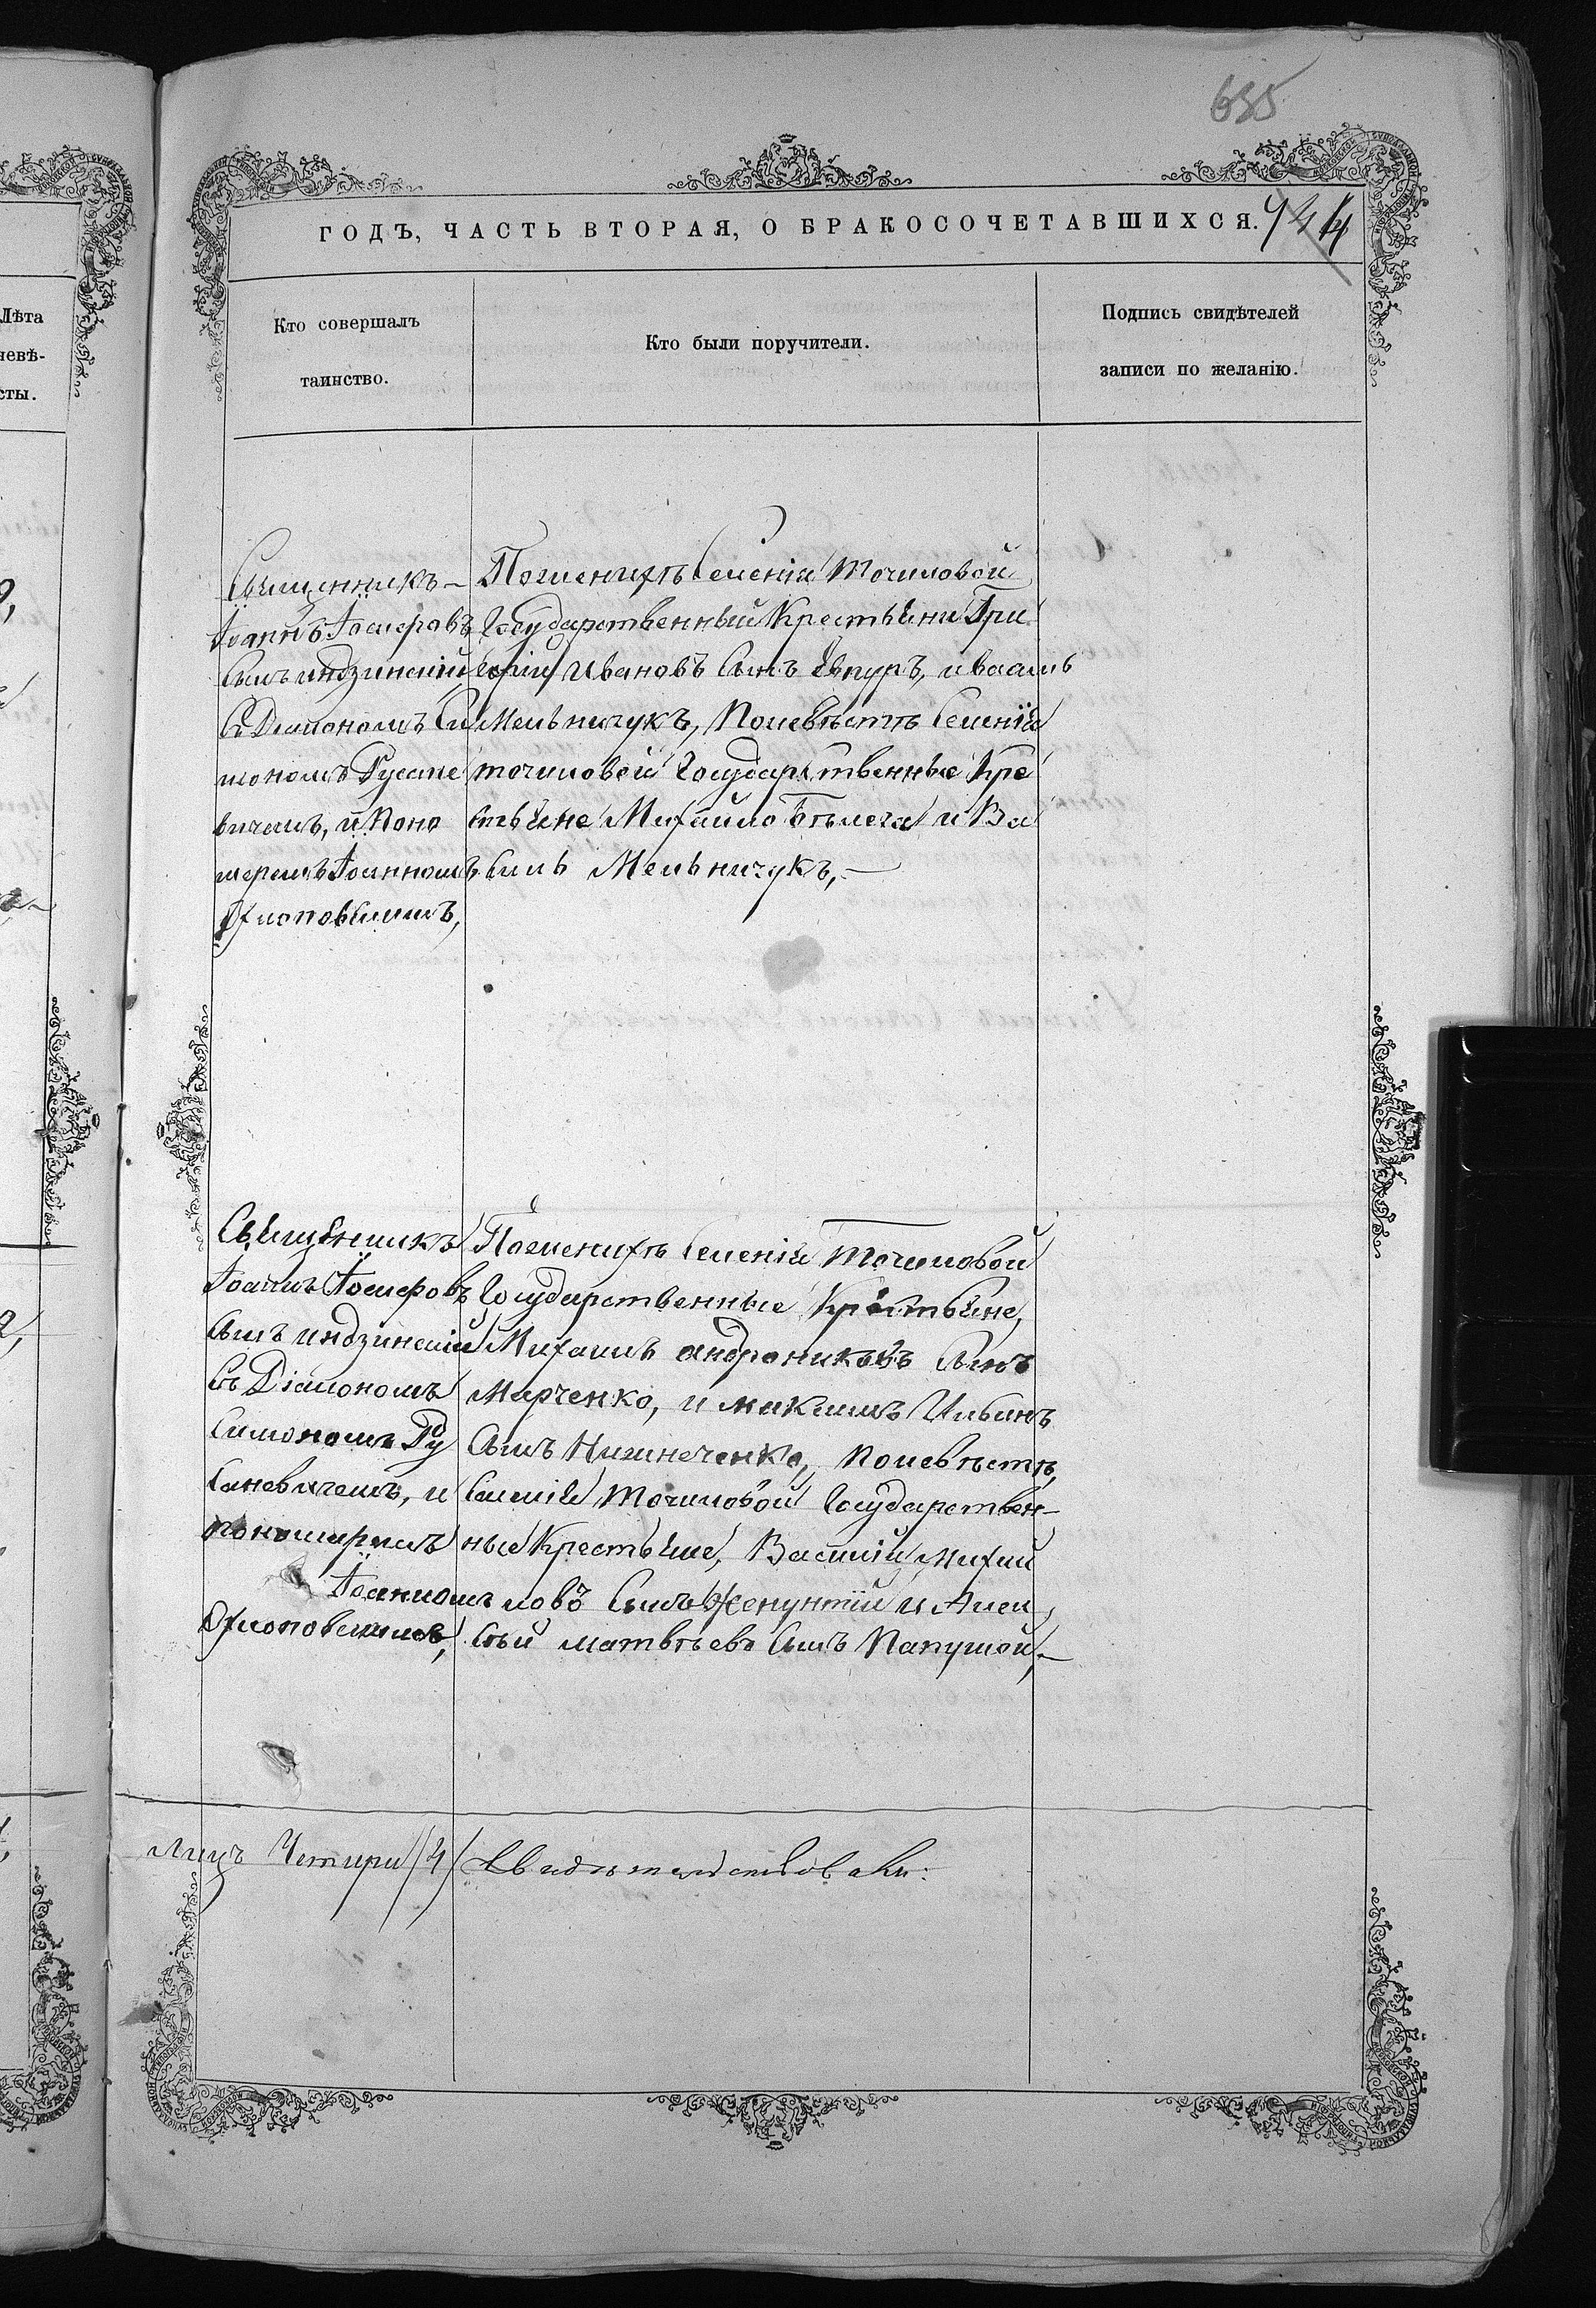 635
ГОДЪ, ЧАСТЬ ВТОРАЯ, О БРАКОСОЧЕТАВШИХСЯ.
Лѣта
невѣ-
сты.
Кто совершалъ
таинство.
Кто были поручители.
Подпись свидѣтелей
записи по желанію.
Священникъ-
Іоаннъ
Сынъ индзинскій
Съ Діакономъ Си
мономъ Русане
вичемъ, и Поно
меремъ Іоанномъ
Поженихѣ Селенія Точиловой
Государственный Крестьяни Гри
горій Ивановъ Сынъ и васыль
Мельничукъ, Поневѣстѣ Селенія
точиловой Государственные Кре
стьяне Михайло и Ва
силь Мельничукъ,-
Священникъ
Іоаннъ
Сынъ индзинскій
Съ Діакономъ
Симономъ Ру
саневичемъ, и
пономаремъ
Іоанномъ
Поженихѣ Селенія Точиловой
Государственные Крестьяне,
Михаилъ андрониковъ Сынъ
Марченко, и максимъ Ильинъ
Сынъ Поневѣстѣ,
Селенія Точиловой Государствен-
ные Крестьяне, Василій Михай
ловъ Сынъ и Алек
сѣй матвѣевъ Сынъ Папушой,-
Лицъ Четыри (4) Свидѣтельствовалъ: